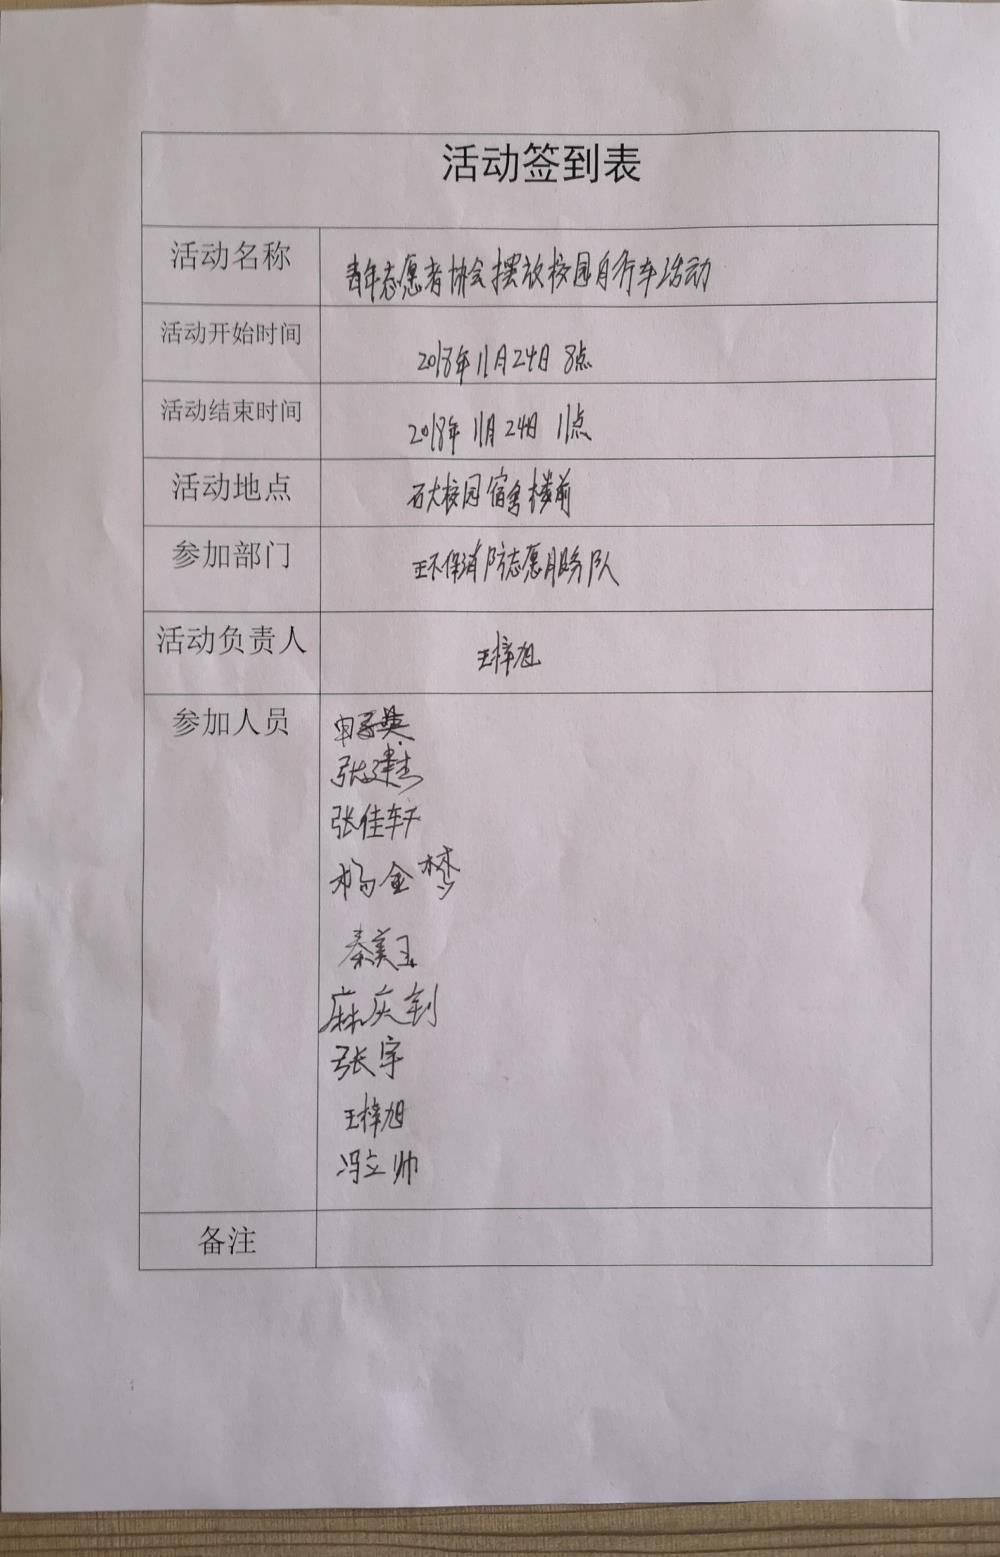 活动签到表
活动名称 青年志愿者协会摆放校园自行车活动
活动开始时间 2018年11月24日 8点
活动结束时间 2018年11月24日 11点
活动地点 石大校园宿舍楼前
参加部门 环保消防志愿服务队
活动负责人 王梓旭
参加人员
张建杰
张佳轩
杨金梦
秦美玉
麻庆钊
张宇
王梓旭
冯立帅
备注